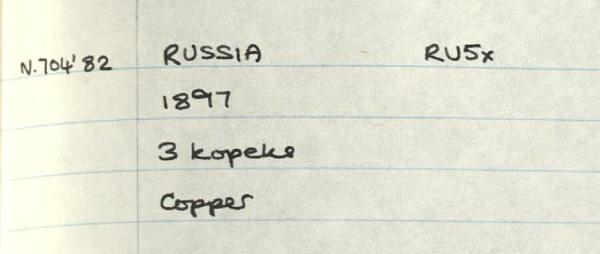 N.704'82 RUSSIA RU5x
1897
3 kopeke
Copper